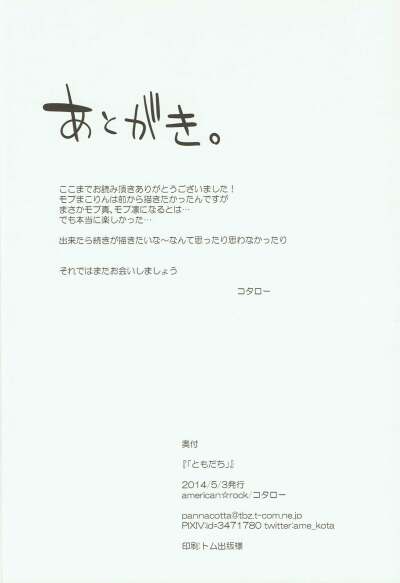 あとがき。
ここまでお読み頂きありがとうございました!
モブまこりんは前から描きたかったんですが
まさかモブ真、モブ凛になるとは…
でも本当に楽しかった…
出来たら続きが描きたいな～なんて思ったり思わなかったり
それではまたお会いしましょう
コタロー
奥付
『「ともだち」』
2014/5/3発行
american☆rock/コタロー
pannacotta@tbz.t-com.ne.jp
PIXIV:id=3471780 twitter:ame_kota
印刷:トム出版様